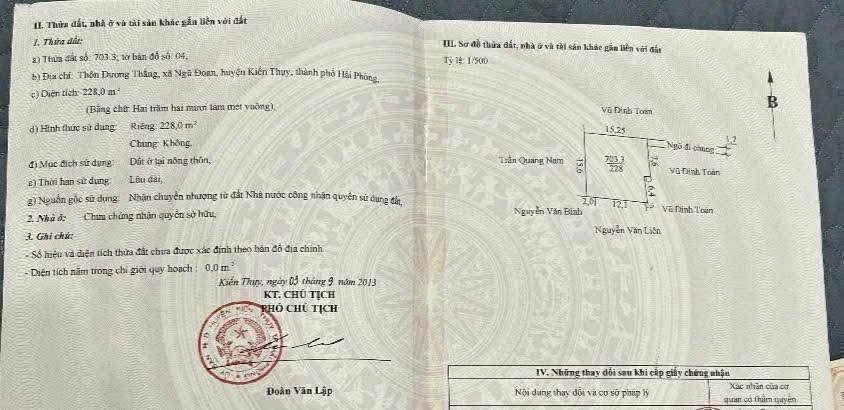 II. Thửa đất, nhà ở và tài sản khác gắn liền với đất
1. Thửa đất:
a) Thửa đất số: 703.3; tờ bản đồ số: 04,
b) Địa chỉ: Thôn Dương Thắng, xã Ngũ Đoan, huyện Kiến Thụy, thành phố Hải Phòng,
c) Diện tích: 228,0 m²
(Bằng chữ: Hai trăm hai mươi tám mét vuông),
d) Hình thức sử dụng: Riêng: 228,0 m²
Chung: Không,
đ) Mục đích sử dụng: Đất ở tại nông thôn,
e) Thời hạn sử dụng: Lâu dài,
g) Nguồn gốc sử dụng: Nhận chuyển nhượng từ đất Nhà nước công nhận quyền sử dụng đất,
2. Nhà ở: Chưa chứng nhận quyền sở hữu,
3. Ghi chú:
- Số hiệu và diện tích thửa đất chưa được xác định theo bản đồ địa chính
- Diện tích nằm trong chỉ giới quy hoạch : 0,0 m²
Kiến Thụy, ngày 03 tháng 9 năm 2013
KT. CHỦ TỊCH
PHÓ CHỦ TỊCH
Đoàn Văn Lập
III. Sơ đồ thửa đất, nhà ở và tài sản khác gắn liền với đất
Tỷ lệ: 1/500
B
Vũ Đình Toàn
15,25
Ngõ đi chung
1,2
Trần Quang Nam
15,6
703.3
228
7,6
Vũ Đình Toàn
6,4
2,01
12,1
Vũ Đình Toàn
Nguyễn Văn Bình
Nguyễn Văn Liên
IV. Những thay đổi sau khi cấp giấy chứng nhận
Nội dung thay đổi và cơ sở pháp lý
Xác nhận của cơ
quan có thẩm quyền